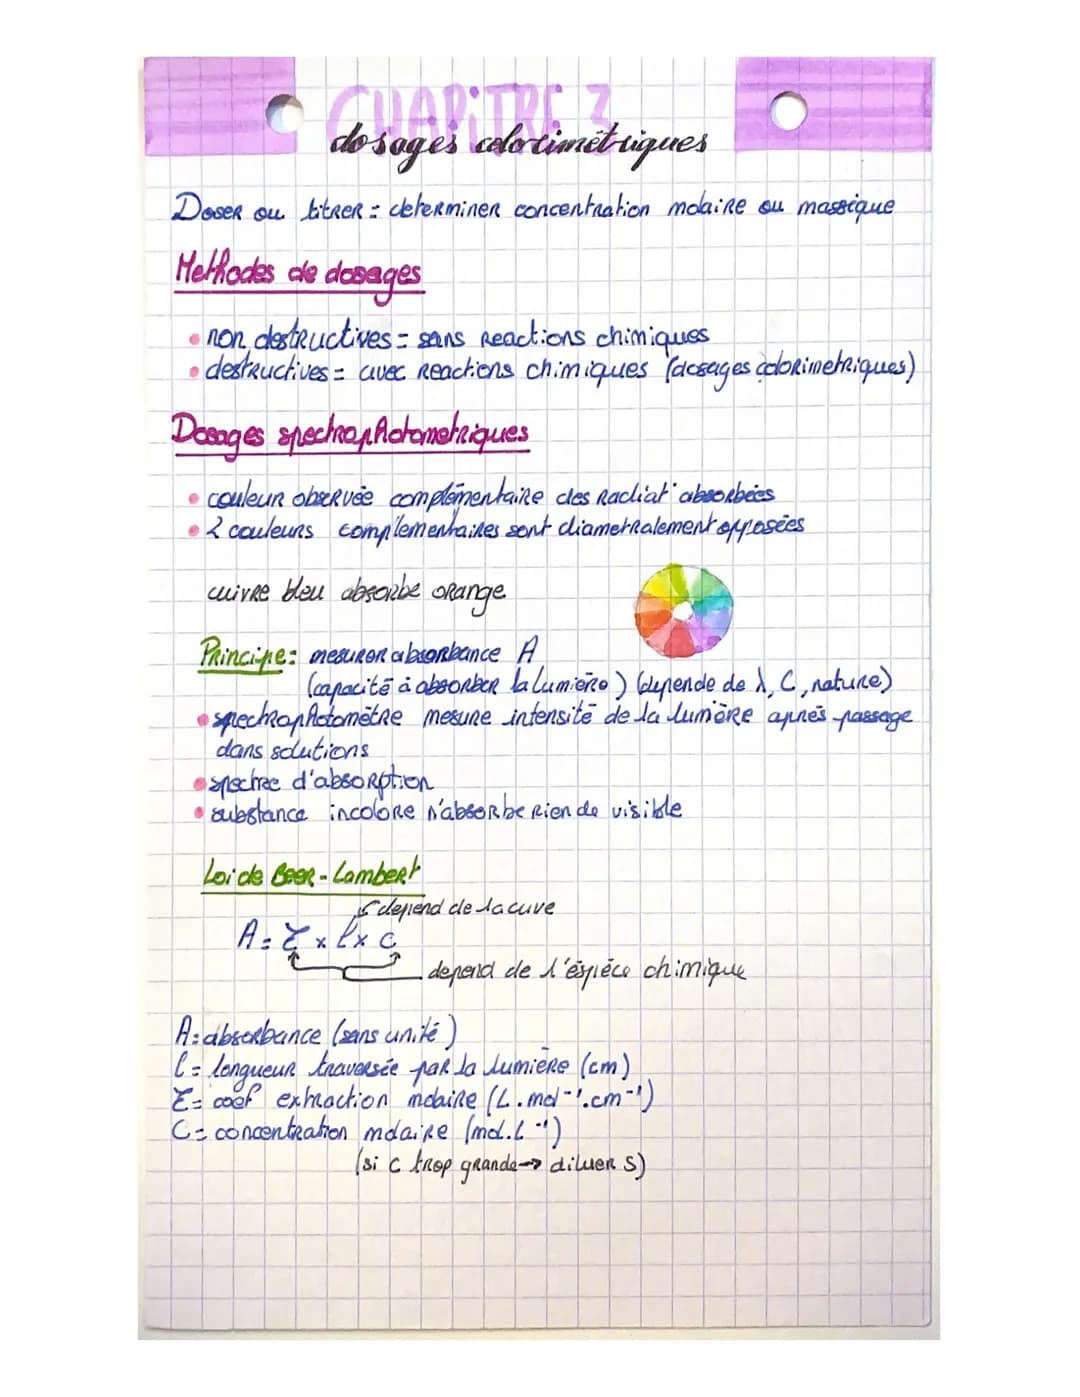 CHAPiTRE 3
dosages colorimétriques
Doser ou titrer = determiner concentration molaire ou massique
Methodes de dosages
• non destructives = sans reactions chimiques
• destructives = avec reactions chimiques (dosages colorimetriques)
Dosages spectrophotometriques
• couleur observée complémentaire des radiat° absorbées
• 2 couleurs complementaires sont diametralement opposées
cuivre bleu absorbe orange
Principe: mesurer absorbance A
(capacité à absorber la lumière) (depende de λ, C, nature)
• spectrophotomètre mesure intensité de la lumière après passage
dans solutions
• spectre d'absorption
• substance incolore n'absorbe rien de visible
Loi de Beer - Lambert
depend de la cuve
A = Ɛ x l x c
depend de l'éspièce chimique
A: absorbance (sans unité)
l = longueur traversée par la lumière (cm)
Ɛ = coef extraction molaire (L.mol⁻¹.cm⁻¹)
C = concentration molaire (mol.L⁻¹)
(si c trop grande → diluer S)